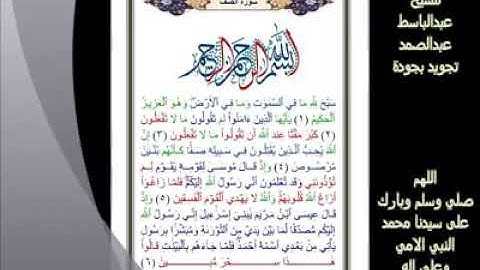 سورة الصف
للشيخ
عبدالباسط
عبدالصمد
تجويد بجودة
بسم الله الرحمن الرحيم
سَبَّحَ لِلَّهِ مَا فِي ٱلسَّمَٰوَٰتِ وَمَا فِي ٱلْأَرْضِ وَهُوَ ٱلْعَزِيزُ
ٱلْحَكِيمُ (١) يَٰٓأَيُّهَا ٱلَّذِينَ ءَامَنُوا۟ لِمَ تَقُولُونَ مَا لَا تَفْعَلُونَ
(٢) كَبُرَ مَقْتًا عِندَ ٱللَّهِ أَن تَقُولُوا۟ مَا لَا تَفْعَلُونَ (٣) إِنَّ
ٱللَّهَ يُحِبُّ ٱلَّذِينَ يُقَٰتِلُونَ فِي سَبِيلِهِ صَفًّا كَأَنَّهُم بُنْيَٰنٌ
مَّرْصُوصٌ (٤) وَإِذْ قَالَ مُوسَىٰ لِقَوْمِهِ يَٰقَوْمِ لِمَ
تُؤْذُونَنِي وَقَد تَّعْلَمُونَ أَنِّي رَسُولُ ٱللَّهِ إِلَيْكُمْ فَلَمَّا زَاغُوٓا۟
أَزَاغَ ٱللَّهُ قُلُوبَهُمْ وَٱللَّهُ لَا يَهْدِي ٱلْقَوْمَ ٱلْفَٰسِقِينَ (٥) وَإِذْ
قَالَ عِيسَى ٱبْنُ مَرْيَمَ يَٰبَنِيٓ إِسْرَٰٓءِيلَ إِنِّي رَسُولُ ٱللَّهِ
إِلَيْكُم مُّصَدِّقًا لِّمَا بَيْنَ يَدَيَّ مِنَ ٱلتَّوْرَىٰةِ وَمُبَشِّرًۢا بِرَسُولٍ
يَأْتِي مِنۢ بَعْدِي ٱسْمُهُۥٓ أَحْمَدُ فَلَمَّا جَآءَهُم بِٱلْبَيِّنَٰتِ قَالُوا۟
هَٰذَا سِحْرٌ مُّبِينٌ (٦)
اللهم
صلي وسلم وبارك
على سيدنا محمد
النبي الامي
وعلى اله